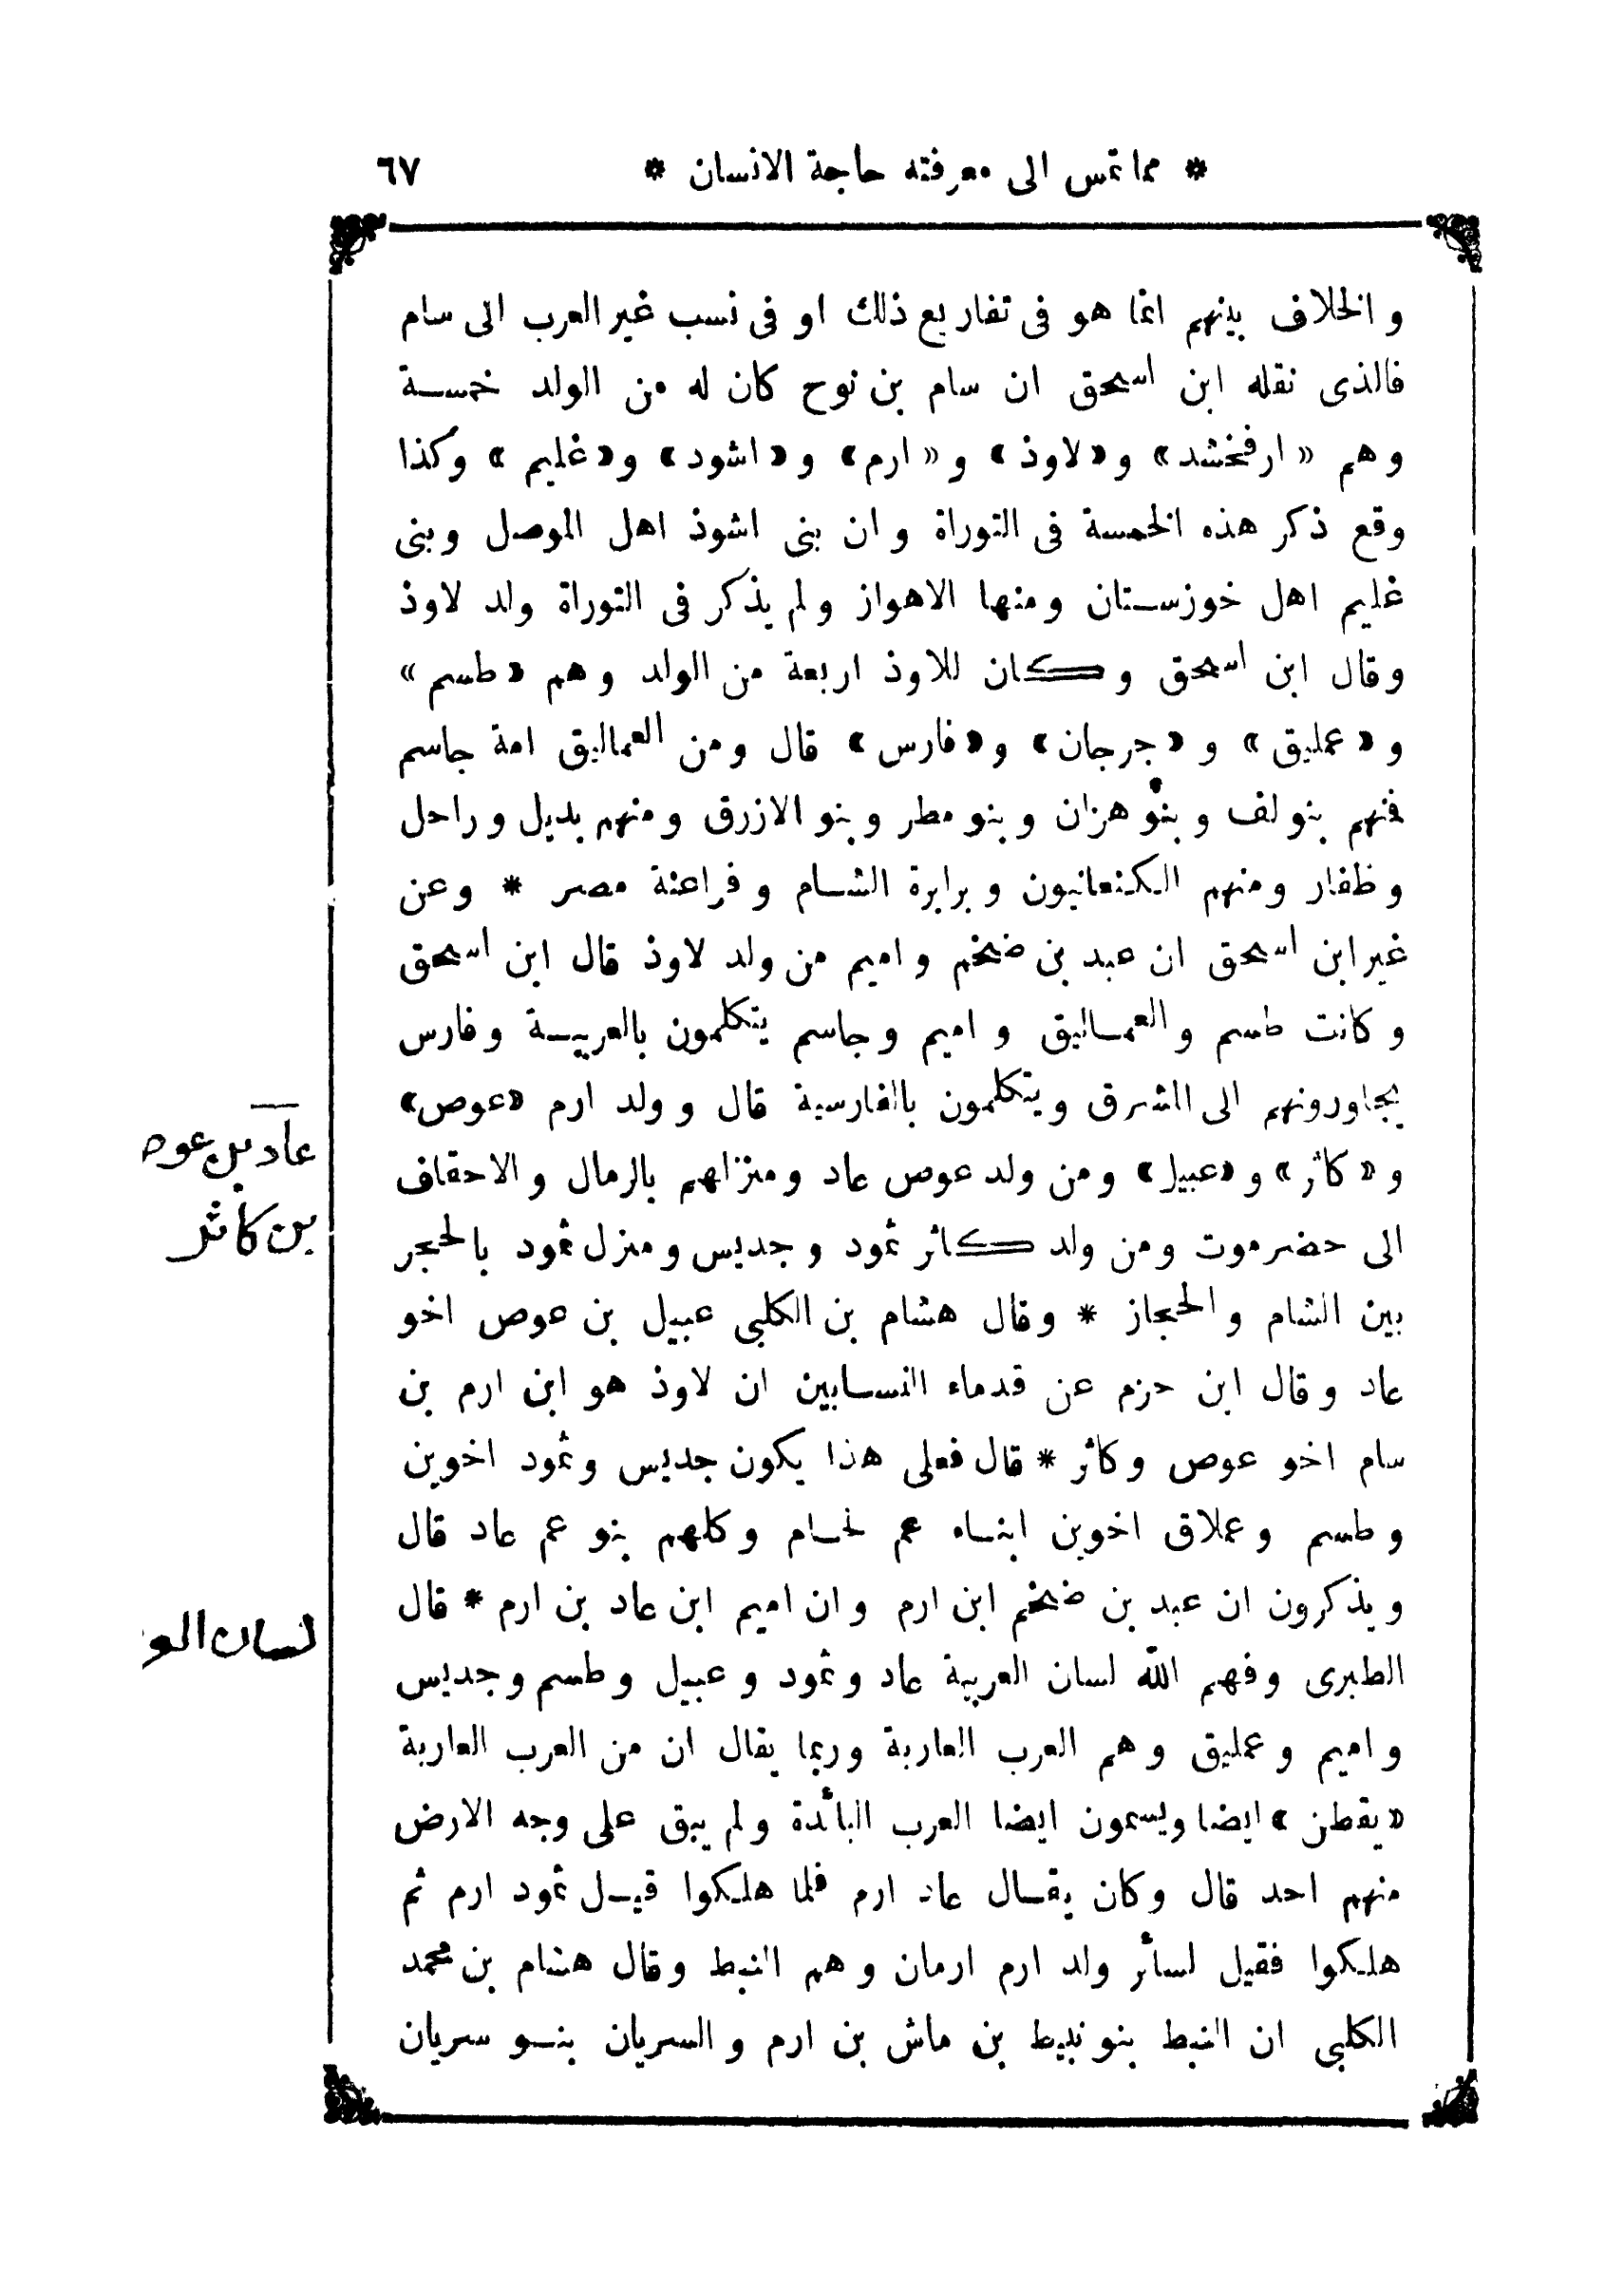 * مما تمس الى معرفته حاجة الانسان * ٦٧
والخلاف بينهم انما هو فى تفاريع ذلك او فى نسب غير العرب الى سام
فالذى نقله ابن اسحق ان سام بن نوح كان له من الولد خمســة
وهم « ارفخشد » و« لاوذ » و « ارم » و « اشود » و« غليم » وكذا
وقع ذكر هذه الخمسة فى التوراة وان بنى اشوذ اهل الموصل وبنى
غليم اهل خوزســتان ومنها الاهواز ولم يذكر فى التوراة ولد لاوذ
وقال ابن اسحق وكان للاوذ اربعة من الولد وهم « طسم »
و « عمليق » و « جرجان » و« فارس » قال ومن العماليق امة جاسم
فنهم بنو لف وبنو هزان وبنو مطر وبنو الازرق ومنهم بديل وراحل
وظفار ومنهم الكنعانيون وبرابرة الشــام وفراعنة مصر * وعن
غير ابن اسحق ان عبد بن ضخم واميم من ولد لاوذ قال ابن اسحق
وكانت طسم والعمــاليق واميم وجاسم يتكلمون بالعربيــة وفارس
يجاورونهم الى الشرق ويتكلمون بالفارسية قال وولد ارم «عوص»
و « كاثر » و «عبيل» ومن ولد عوص عاد ومنزلهم بالرمال والاحقاف
الى حضرموت ومن ولد كاثر ثمود وجديس ومنزل ثمود بالحجر
بين الشام والحجاز * وقال هشام بن الكلبى عبيل بن عوص اخو
عاد وقال ابن حزم عن قدماء النســابين ان لاوذ هو ابن ارم بن
سام اخو عوص وكاثر * قال فعلى هذا يكون جديس وثمود اخوين
وطسم وعملاق اخوين ابنــاء عم لحــام وكلهم بنو عم عاد قال
ويذكرون ان عبد بن ضخم ابن ارم وان اميم ابن عاد بن ارم * قال
الطبرى وفهم الله لسان العربية عاد وثمود وعبيل وطسم وجديس
واميم وعمليق وهم العرب العاربة وربما يقال ان من العرب العاربة
« يقطن » ايضا ويسمون ايضا العرب البائدة ولم يبق على وجه الارض
منهم احد قال وكان يقــال عاد ارم فلما هلكوا قيــل ثمود ارم ثم
هلكوا فقيل لسائر ولد ارم ارمان وهم النبط وقال هشام بن محمد
الكلبى ان النبط بنو نبيط بن ماش بن ارم والسريان بنــو سريان
عاد بن عوص
بن كاثر
لسان العر